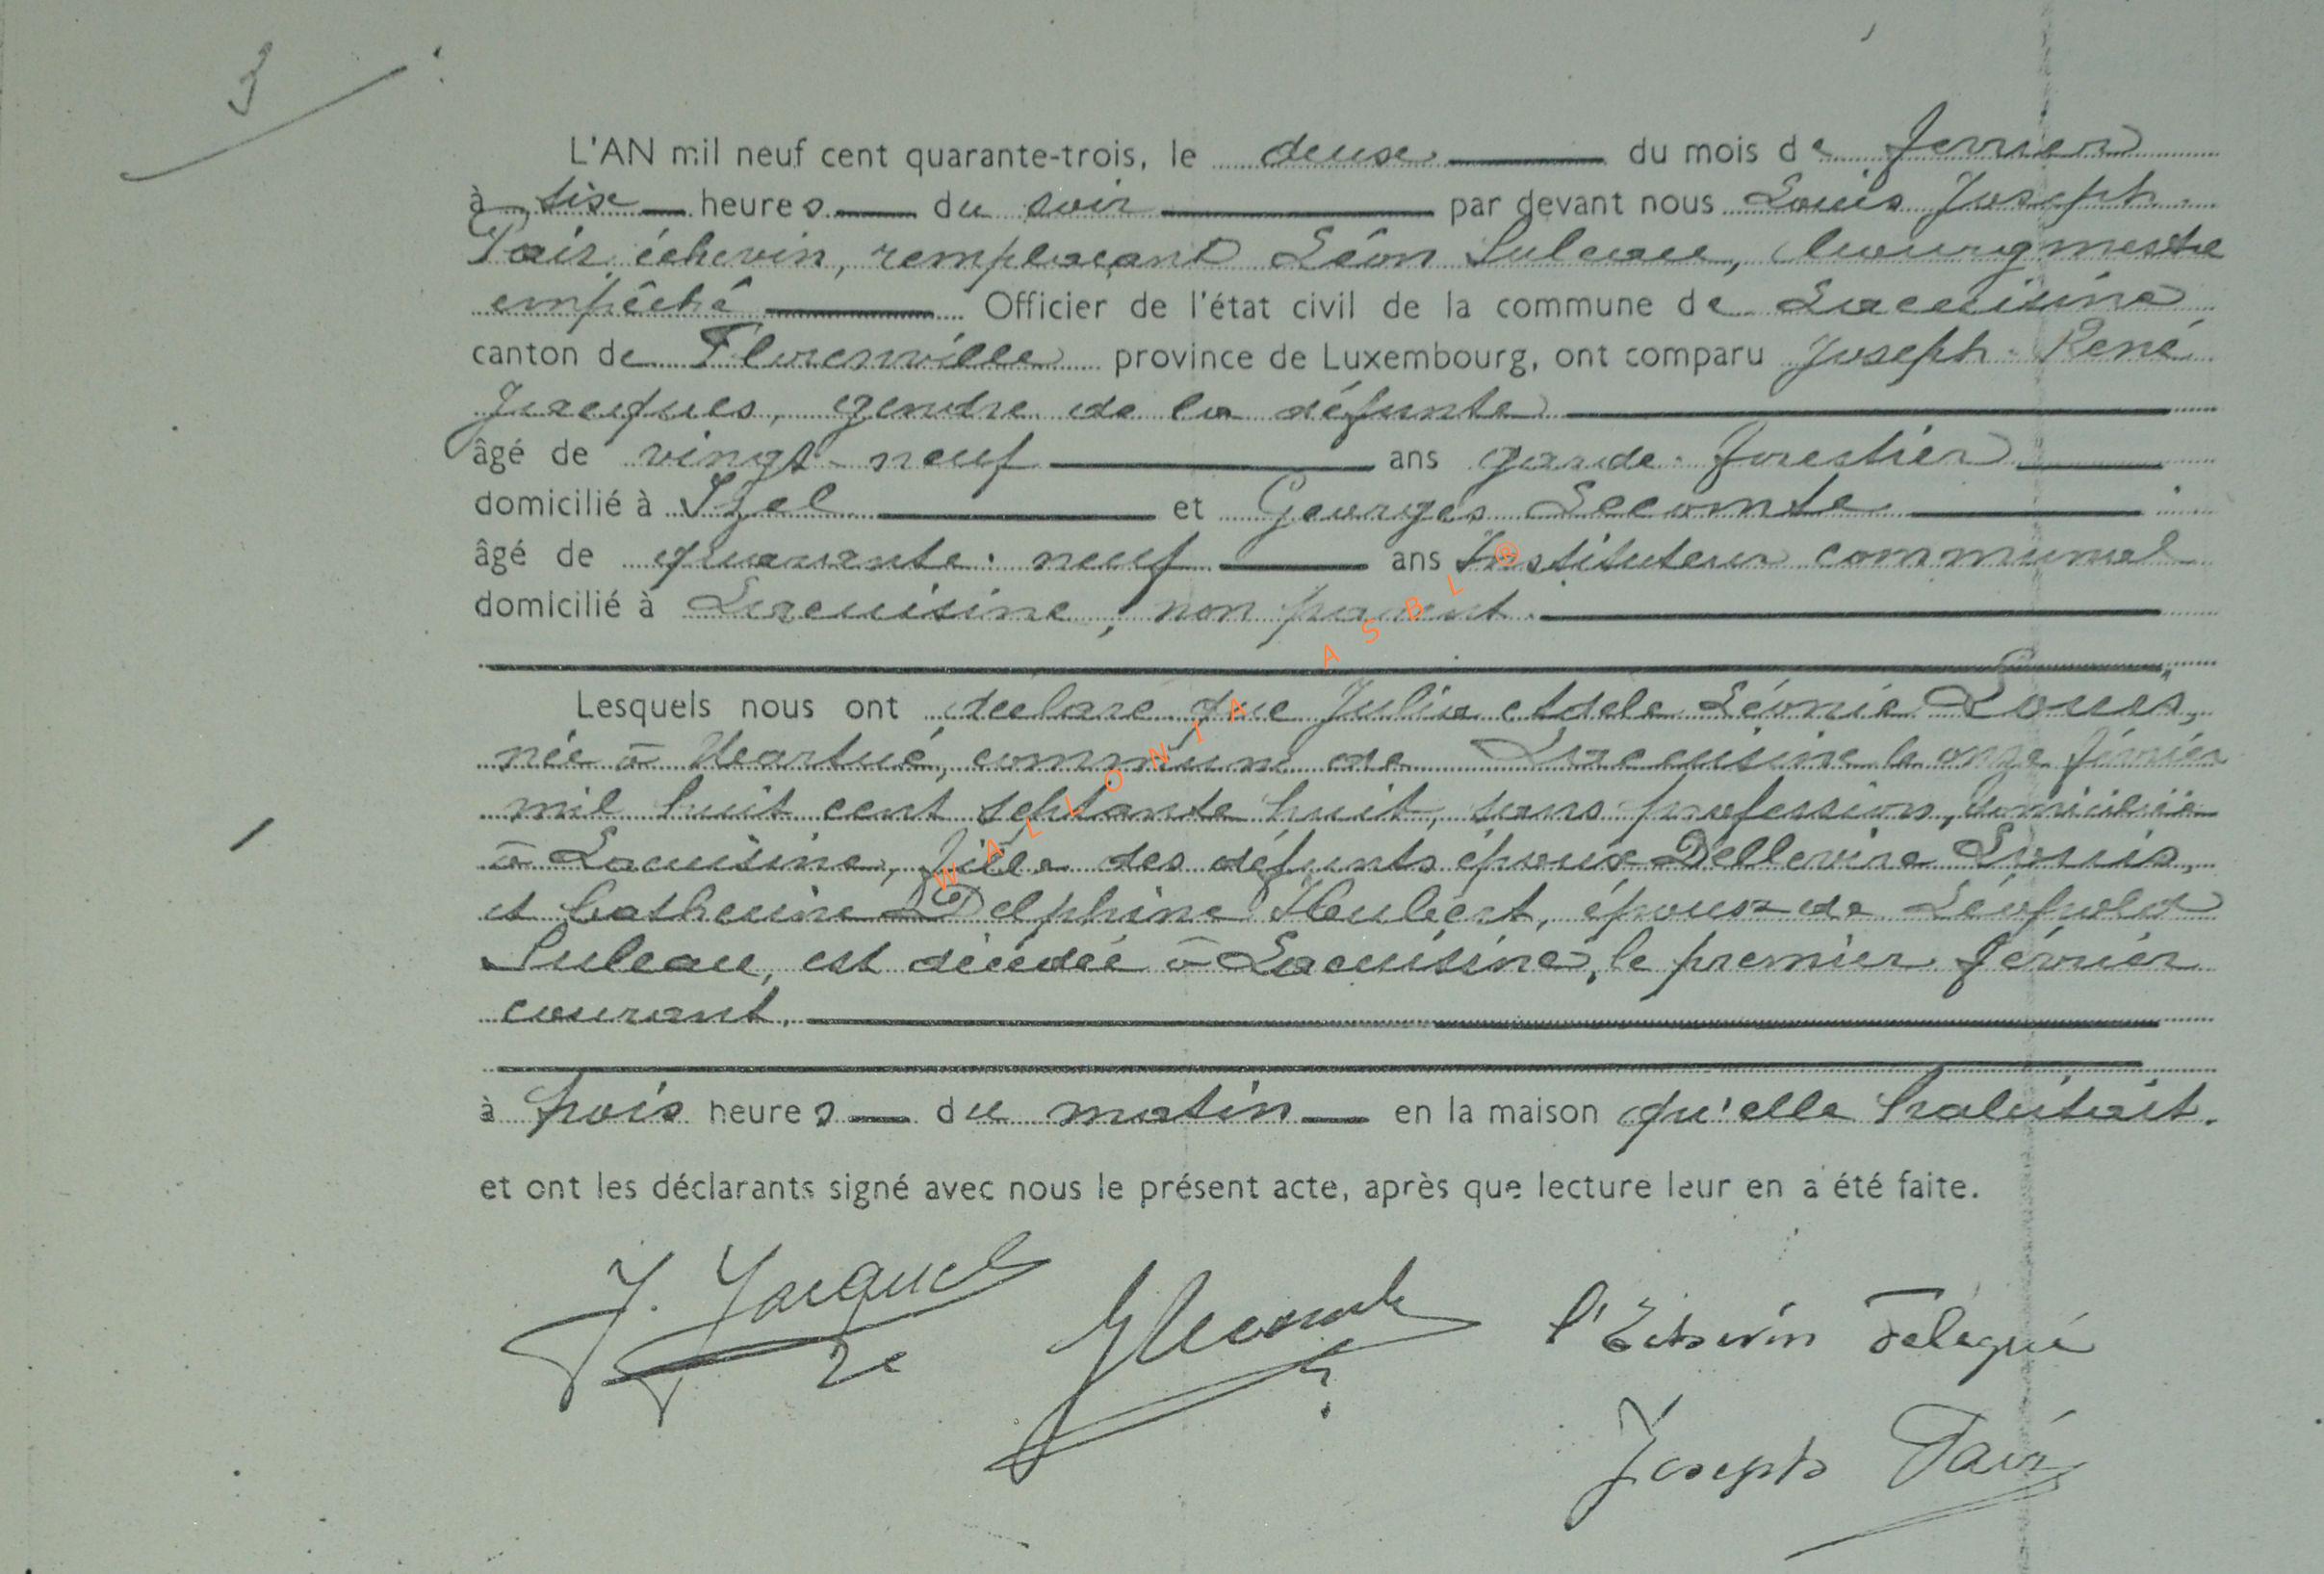 3
L'AN mil neuf cent quarante-trois, le deux du mois de fevrier
à six heures du soir par devant nous Louis Joseph
Pair, échevin, remplaçant Léon Suleau, bourgmestre
empêché Officier de l'état civil de la commune de Lacuisine
canton de Florenville province de Luxembourg, ont comparu Joseph-René
Jacques, gendre de la défunte
âgé de vingt-neuf ans garde-forestier
domicilié à Izel et Georges Lecomte
âgé de quarante-neuf ans Instituteur communal
domicilié à Lacuisine, non parent.
Lesquels nous ont declare que Julia Adele Léonie
née à Martué, commune de Lacuisine le onze février
mil huit cent septante huit, sans profession, domiciliée
à Lacuisine, fille des défunts époux Louis,
et Catherine Delphine Hubert, épouse de Léopold
Suleau, est décédée à Lacuisine, le premier février
courant.
à trois heures du matin en la maison qu'elle habitait.
et ont les déclarants signé avec nous le présent acte, après que lecture leur en a été faite.
J. Jacques GLecomte l'Echevin délégué
Joseph Pair
WALLONIA ASBL ®